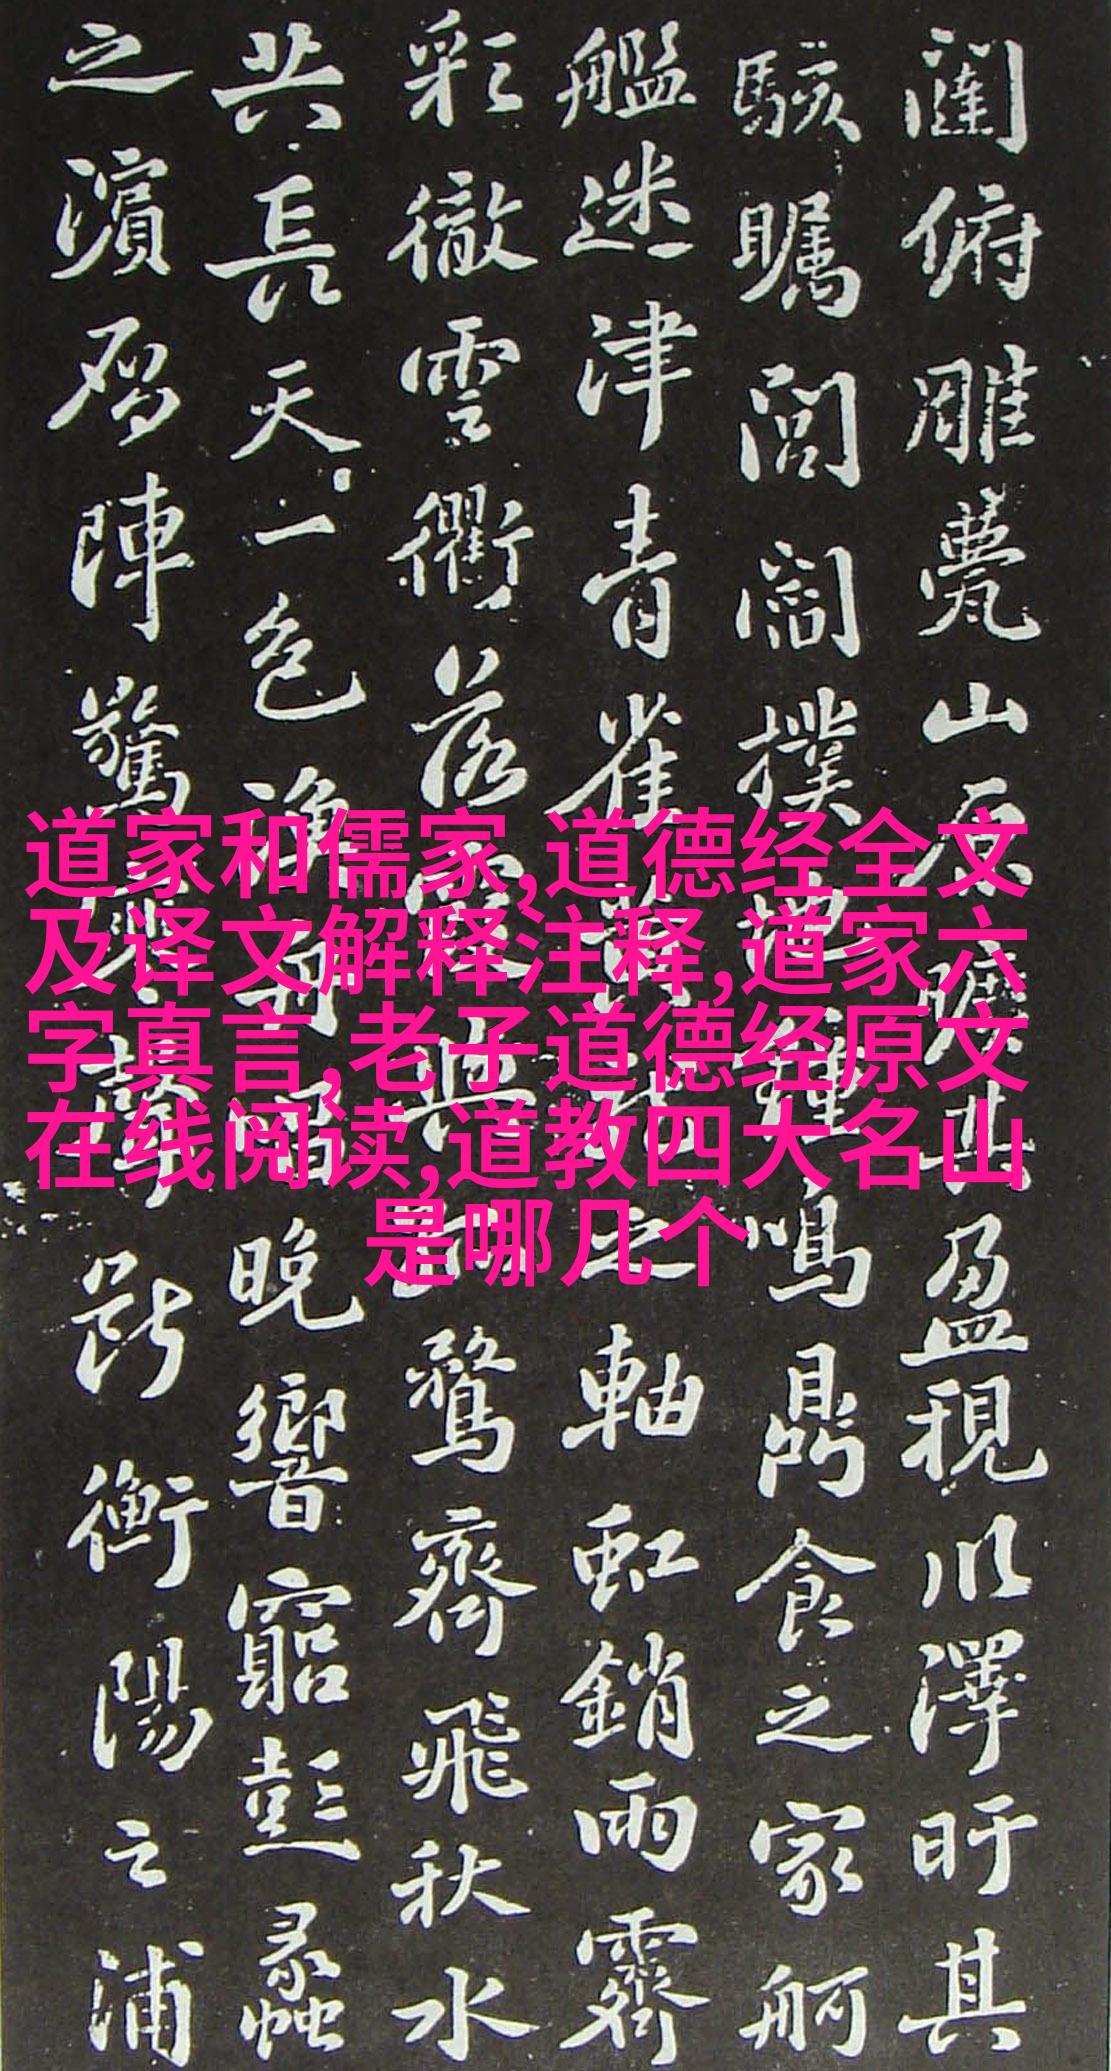 闥俯雕甍山原曠其盈視川澤盱其
駭矚閭閻撲地鐘鳴鼎食之家舸
艦迷津青雀黃龍之軸虹銷雨霽
彩徹雲衢落霞與孤鶩齊飛秋水
共長天一色漁舟唱晚響窮彭蠡
之濱雁陣驚寒聲斷衡陽之浦
道家和儒家,道德经全文
及译文解释注释,道家六
字真言,老子道德经原文
在线阅读,道教四大名山
是哪几个